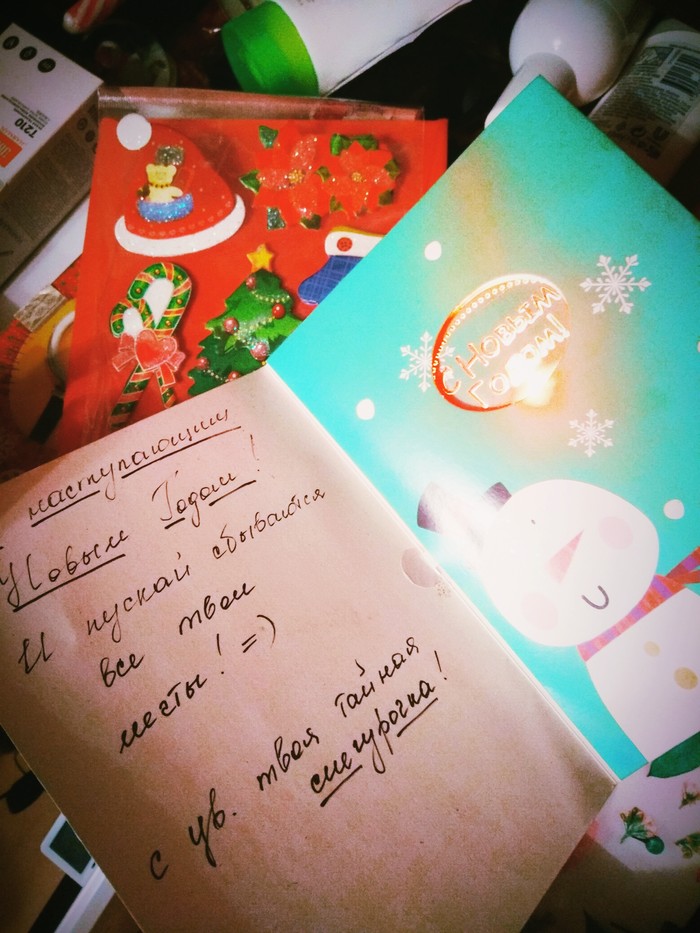 T210
С НОВЫМ
ГОДОМ!
наступающим
Новым Годом!
И пускай сбываются
все твои
мечты! =)
с ув. твоя тайная
снегурочка!